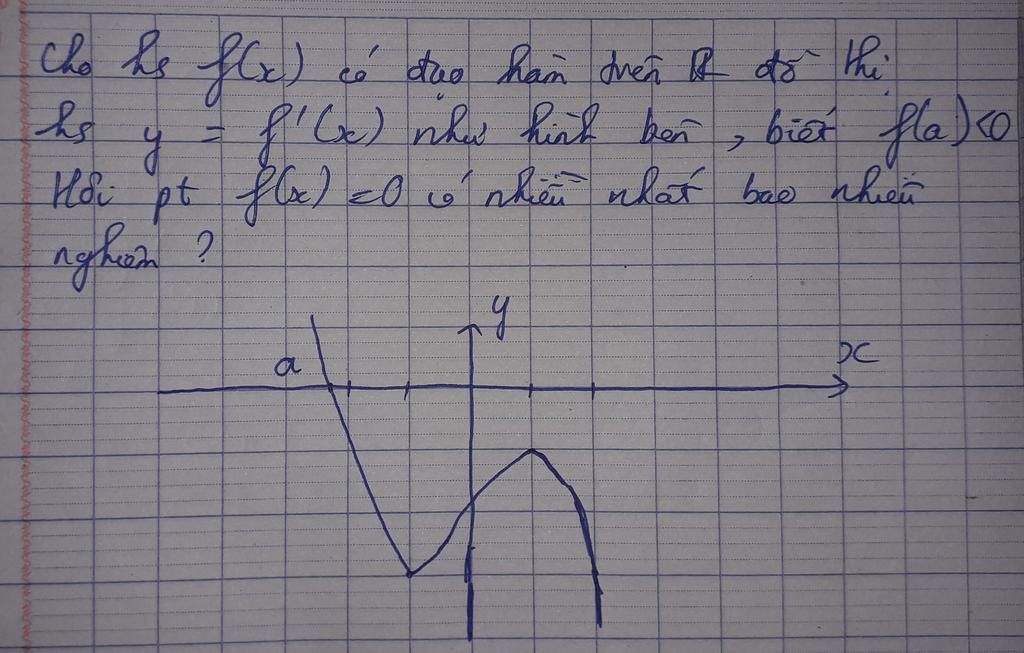 Cho hs f(x) có đạo hàm trên R đồ thị
hs y = f'(x) như hình bên , biết f(a)<0
Hỏi pt f(x) = 0 có nhiều nhất bao nhiêu
nghiệm ?
y
a
x